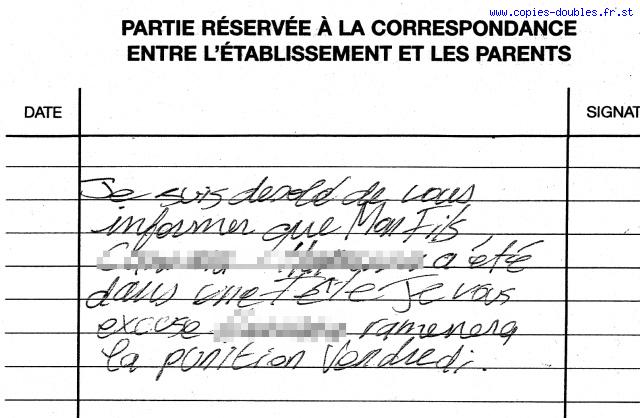 www.copies-doubles.fr.st
PARTIE RÉSERVÉE À LA CORRESPONDANCE
ENTRE L'ÉTABLISSEMENT ET LES PARENTS
DATE
SIGNAT
Je suis desolé de vous
informer que Mon Fils
a été
dans une Fête Je vous
excuse ramenera
la punition Vendredi.